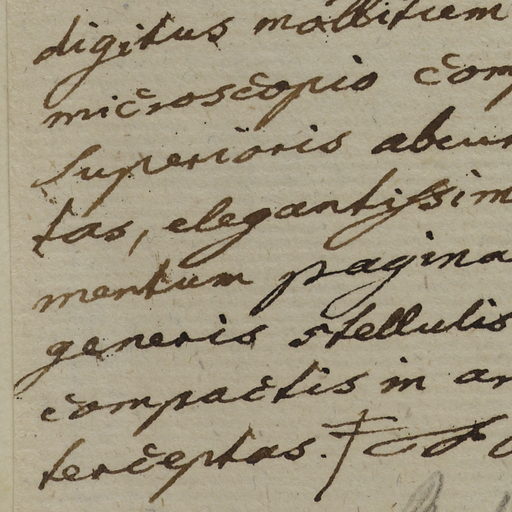 digitus mollitiem
microscopio com
superioris abcun
tas, elegantissim
mentum pagina
generis stellulis
compactis in ar
terceptas.